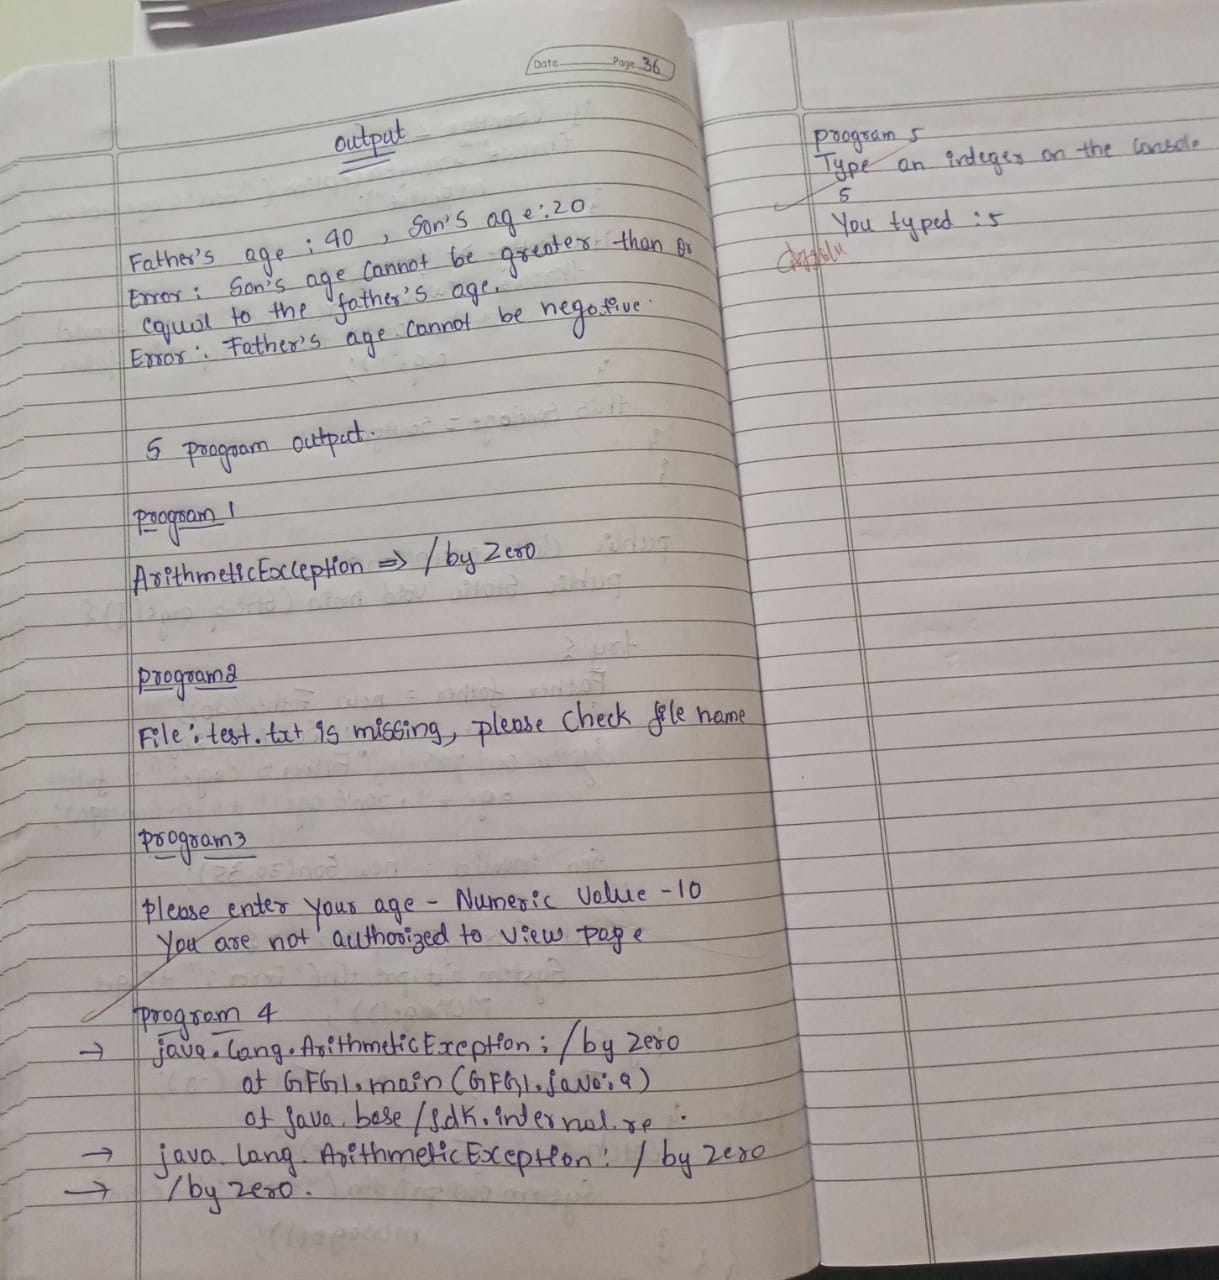 Date Page 36
output
Father's age : 40 , Son's age : 20
Error : Son's age cannot be greater than or
equal to the father's age.
Error : Father's age cannot be negative.
5 program output.
program 1
ArithmeticException => / by zero
program 2
File : test.txt is missing, please check file name
program 3
please enter your age - Numeric value - 10
You are not authorized to view page
program 4
→ java.lang.ArithmeticException : / by zero
at GFG1.main (GFG1.java:9)
at java.base/jdk.internal.re
→ java.lang.ArithmeticException : / by zero
→ / by zero.
program 5
Type an integer on the console
5
You typed : 5